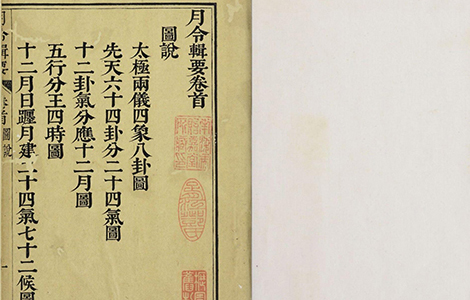 月令輯要卷首
圖說
太極兩儀四象八卦圖
先天六十四卦分二十四氣圖
十二卦氣分應十二月圖
五行分王四時圖
十二月日躔月建二十四氣七十二候圖
月令輯要
卷首圖說
一